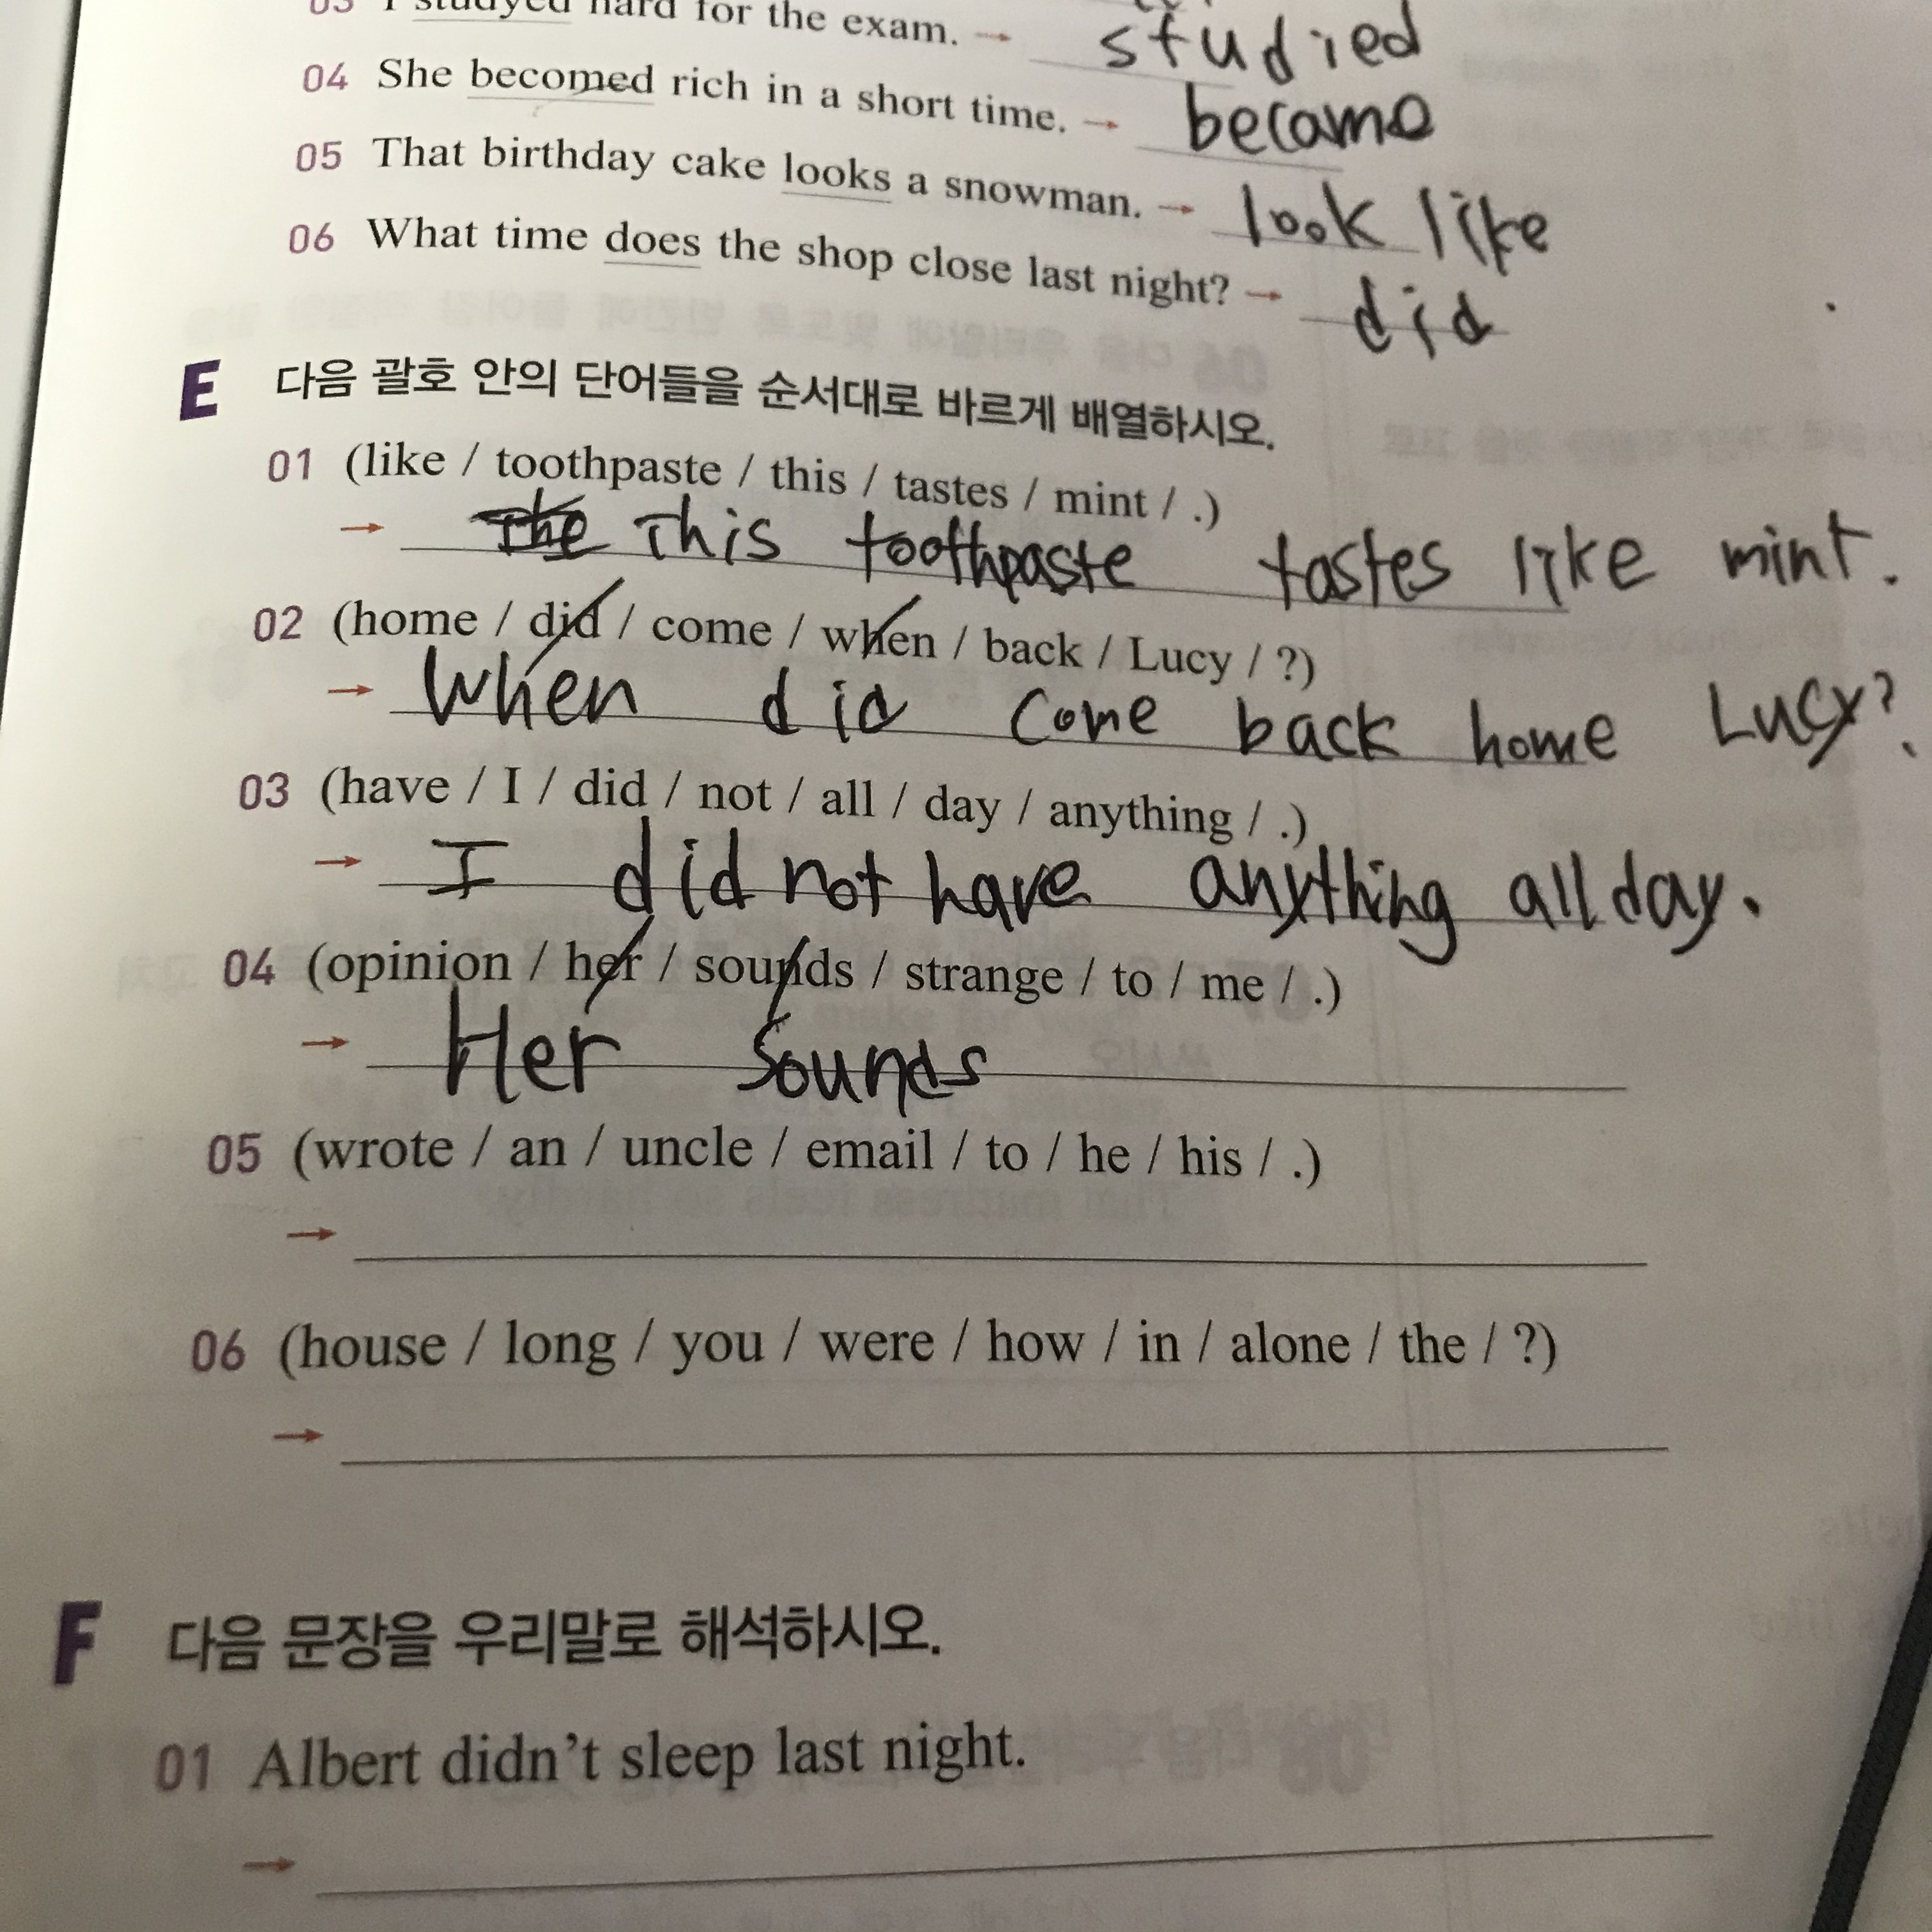 03 I studyed hard for the exam. → studied
04 She becomed rich in a short time. → became
05 That birthday cake looks a snowman. → look like
06 What time does the shop close last night? → did
E 다음 괄호 안의 단어들을 순서대로 바르게 배열하시오.
01 (like / toothpaste / this / tastes / mint / .)
→ The This toothpaste tastes like mint.
02 (home / did / come / when / back / Lucy / ?)
→ When did come back home Lucy?
03 (have / I / did / not / all / day / anything / .)
→ I did not have anything all day.
04 (opinion / her / sounds / strange / to / me / .)
→ Her sounds
05 (wrote / an / uncle / email / to / he / his / .)
→
06 (house / long / you / were / how / in / alone / the / ?)
→
F 다음 문장을 우리말로 해석하시오.
01 Albert didn't sleep last night.
→